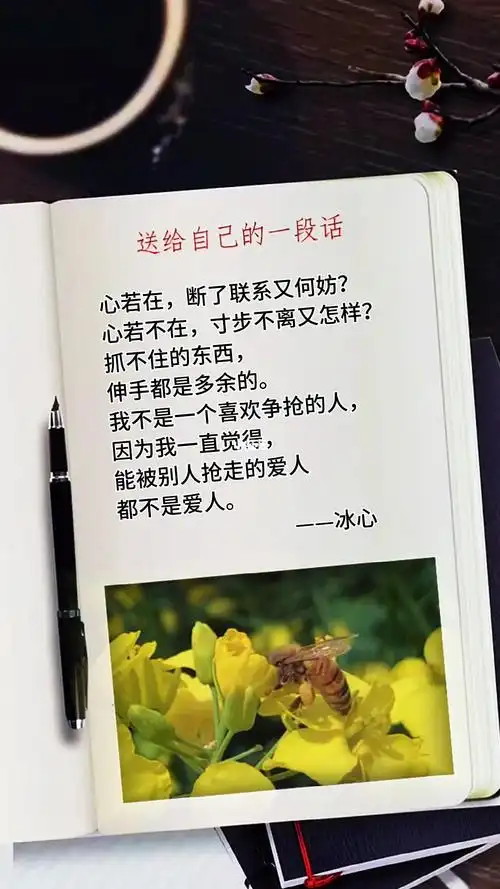 送给自己的一段话
心若在，断了联系又何妨？
心若不在，寸步不离又怎样？
抓不住的东西，
伸手都是多余的。
我不是一个喜欢争抢的人，
因为我一直觉得，
能被别人抢走的爱人
都不是爱人。
——冰心